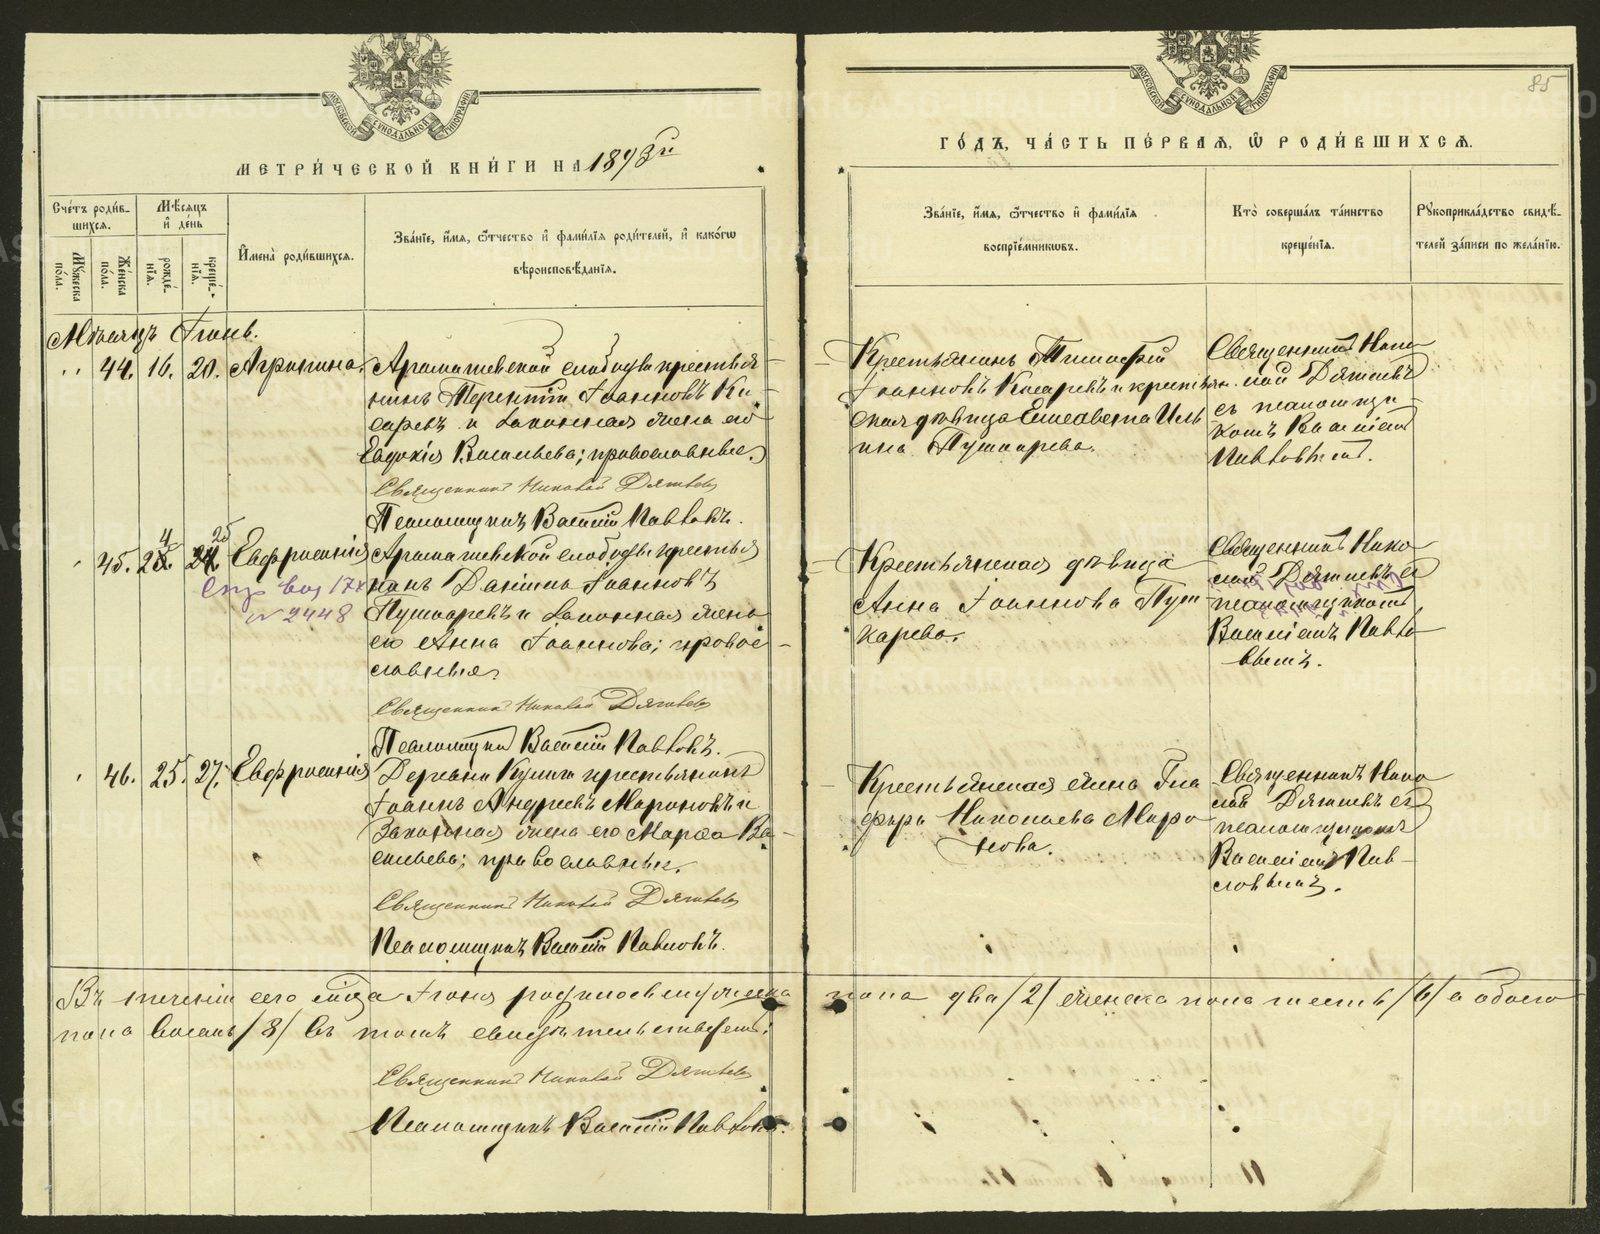 МОСКОВСКОЙ СѴНОДАЛЬНОЙ ТИПОГРАФІИ
МЕТРИ́ЧЕСКОЙ КНИ́ГИ НА 1893й
Сче́тъ роди́в-
шихся.
Мѣ́сяцъ
и҆ де́нь
Мꙋ́жеска
по́ла.
Же́нска
по́ла.
рожде́-
нїя.
креще́-
нїя.
И҆мена̀ роди́вшихся.
Зва́нїе, и҆́мя, ѻ҆́тчество и҆ фами́лїя роди́телей, и҆ како́гѡ
вѣроисповѣ́данїя.
Мѣсяцъ Іюнь.
44. 16. 20. Агрипина.
Арамашевской слободы крестья-
нинъ Терентій Іоанновъ Ко-
саревъ и Законная жена его
Евдокія Васильева; православные.
Священникъ Николай Дягилевъ
Псаломщикъ Василій Павловъ.
45. 25. 4 24. 25 Евфросинія
Арамашевской слободы крестья
нинъ Даніилъ Іоанновъ
Пушкаревъ и Законная жена
его Анна Іоаннова; правос-
славные.
№ 2448
Священникъ Николай Дягилевъ
Псаломщикъ Василій Павловъ.
46. 25. 27. Евфросинія
Деревни Кулиги крестьянинъ
Іоаннъ Андреевъ Мироновъ и
Законная жена его Марѳа Ва-
сильева; православные.
Священникъ Николай Дягилевъ
Псаломщикъ Василій Павловъ.
Въ теченіи сего м҃ца Іюня родилось мужеска
пола восемь /8/ въ томъ свидѣтельствуемъ:
Священникъ Николай Дягилевъ
Псаломщикъ Василій Павловъ.
85
МОСКОВСКОЙ СѴНОДАЛЬНОЙ ТИПОГРАФІИ
ГО́ДЪ, ЧА́СТЬ ПЕ́РВАЯ, Ѡ҆ РОДИ́ВШИХСЯ.
Зва́нїе, и҆́мя, ѻ҆́тчество и҆ фами́лїя
воспрїе́мникѡвъ.
Кто̀ соверша́лъ та́инство
креще́нїя.
Рꙋкоприкла́дство свидѣ́-
телей за́писи по жела́нїю.
Крестьянинъ Тимофей
Іоанновъ Косаревъ и крестьян-
ская дѣвица Елисавета Иль
ина Пушкарева.
Священникъ Нико
лай Дягилевъ
съ псаломщи-
комъ Василіемъ
Павловымъ.
Крестьянская дѣвица
Анна Іоаннова Пуш-
карева.
Священникъ Нико
лай Дягилевъ съ
псаломщикомъ
Василіемъ Павло
вымъ.
Крестьянская жена Гла
фира Николаева Миро
нова.
Священникъ Нико
лай Дягилевъ съ
псаломщикомъ
Василіемъ Пав-
ловымъ.
пола два /2/ женска пола шесть /6/ а обоего